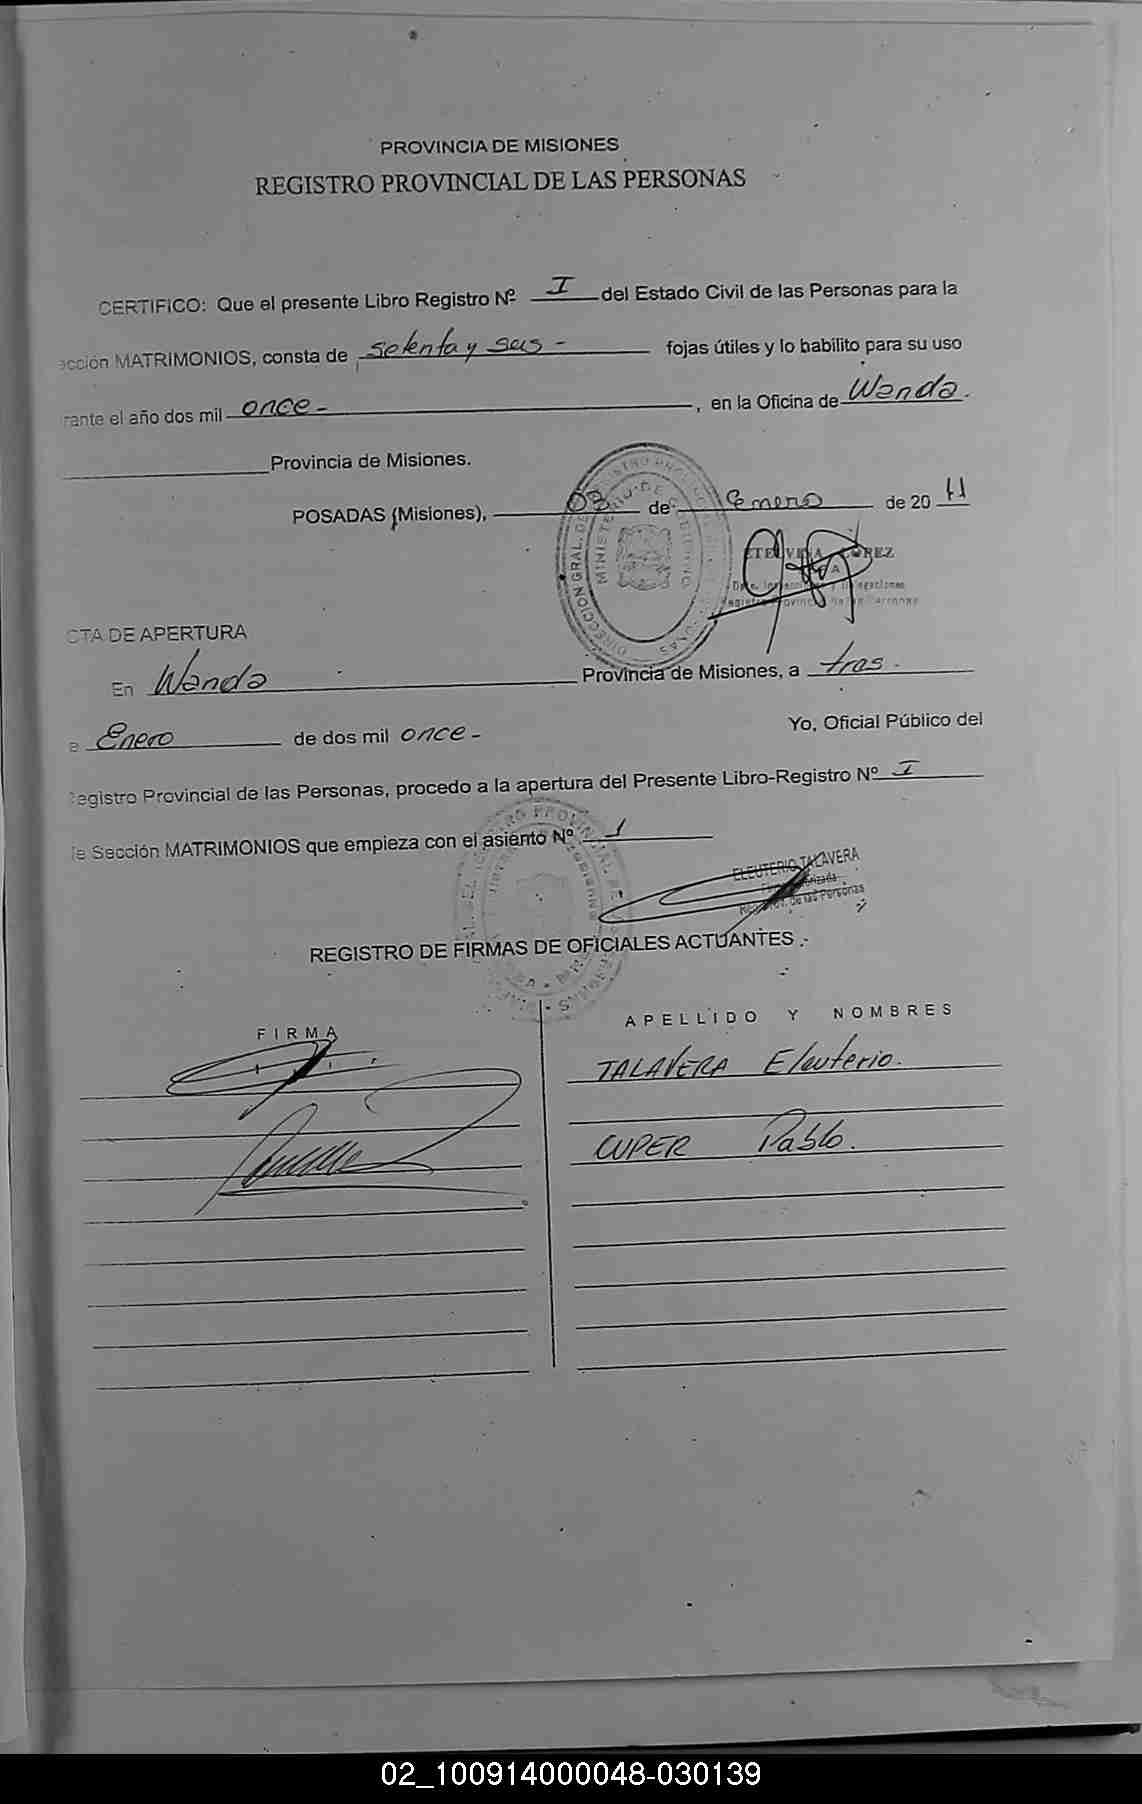 PROVINCIA DE MISIONES
REGISTRO PROVINCIAL DE LAS PERSONAS
CERTIFICO: Que el presente Libro Registro Nº I del Estado Civil de las Personas para la
ección MATRIMONIOS, consta de setenta y seis - fojas útiles y lo habilito para su uso
rante el año dos mil once - , en la Oficina de Wanda.
Provincia de Misiones.
POSADAS (Misiones), 03 de Enero de 20 11
ETELVINA LOPEZ
CTA DE APERTURA
En Wanda Provincia de Misiones, a tres.
e Enero de dos mil once - Yo, Oficial Público del
Registro Provincial de las Personas, procedo a la apertura del Presente Libro-Registro Nº I
de Sección MATRIMONIOS que empieza con el asiento Nº 1
ELEUTERIO TALAVERA
de las Personas
REGISTRO DE FIRMAS DE OFICIALES ACTUANTES .-
FIRMA APELLIDO Y NOMBRES
TALAVERA Eleuterio.
CUPER Pablo.
02_100914000048-030139